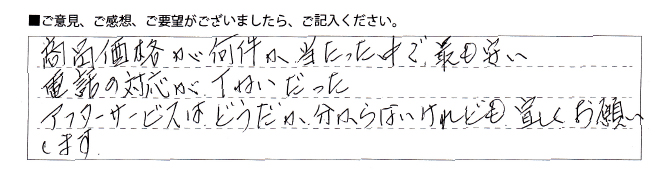 ■ご意見、ご感想、ご要望がございましたら、ご記入ください。
商品価格が何件か当たった中で、最も安い
電話の対応が丁ねいだった
アフターサービスはどうだか、分からないけれども宜しくお願い
します